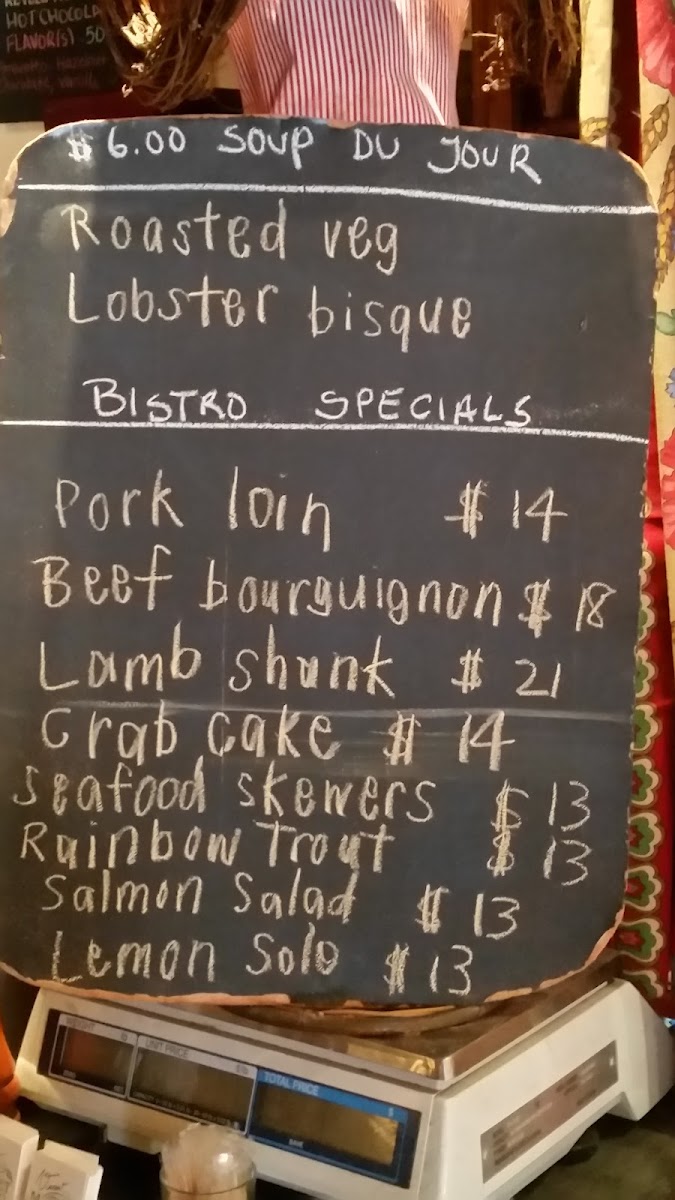 HOT CHOCOLA
FLAVOR(S) .50
$6.00 SOUP DU JOUR
Roasted veg
Lobster bisque
BISTRO SPECIALS
Pork loin $14
Beef bourguignon $18
Lamb shank $21
Crab cake $14
Seafood skewers $13
Rainbow Trout $13
Salmon Salad $13
Lemon Solo $13
WEIGHT
UNIT PRICE
TOTAL PRICE
$